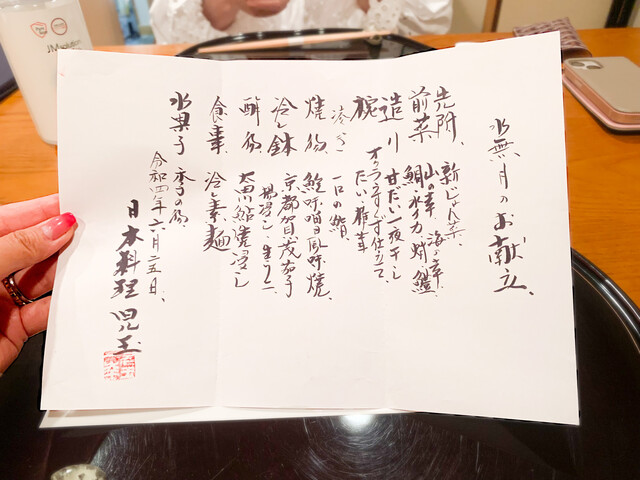 水無月のお献立、
先附、 新じゅん菜、
前菜 山の幸、海の幸、
造り 鯛 水イカ 蛸 鱧
椀 甘だい一夜干し
オクラうすくず仕立て、
一口の鮨、
焼物、 味噌風味焼、
冷し鉢 京都賀茂茄子
揚浸し、生うに
酢物、 太田川鮎焼浸し
食事、 冷し素麺
水菓子 季の物、
令和四年六月二五日、
日本料理 児玉